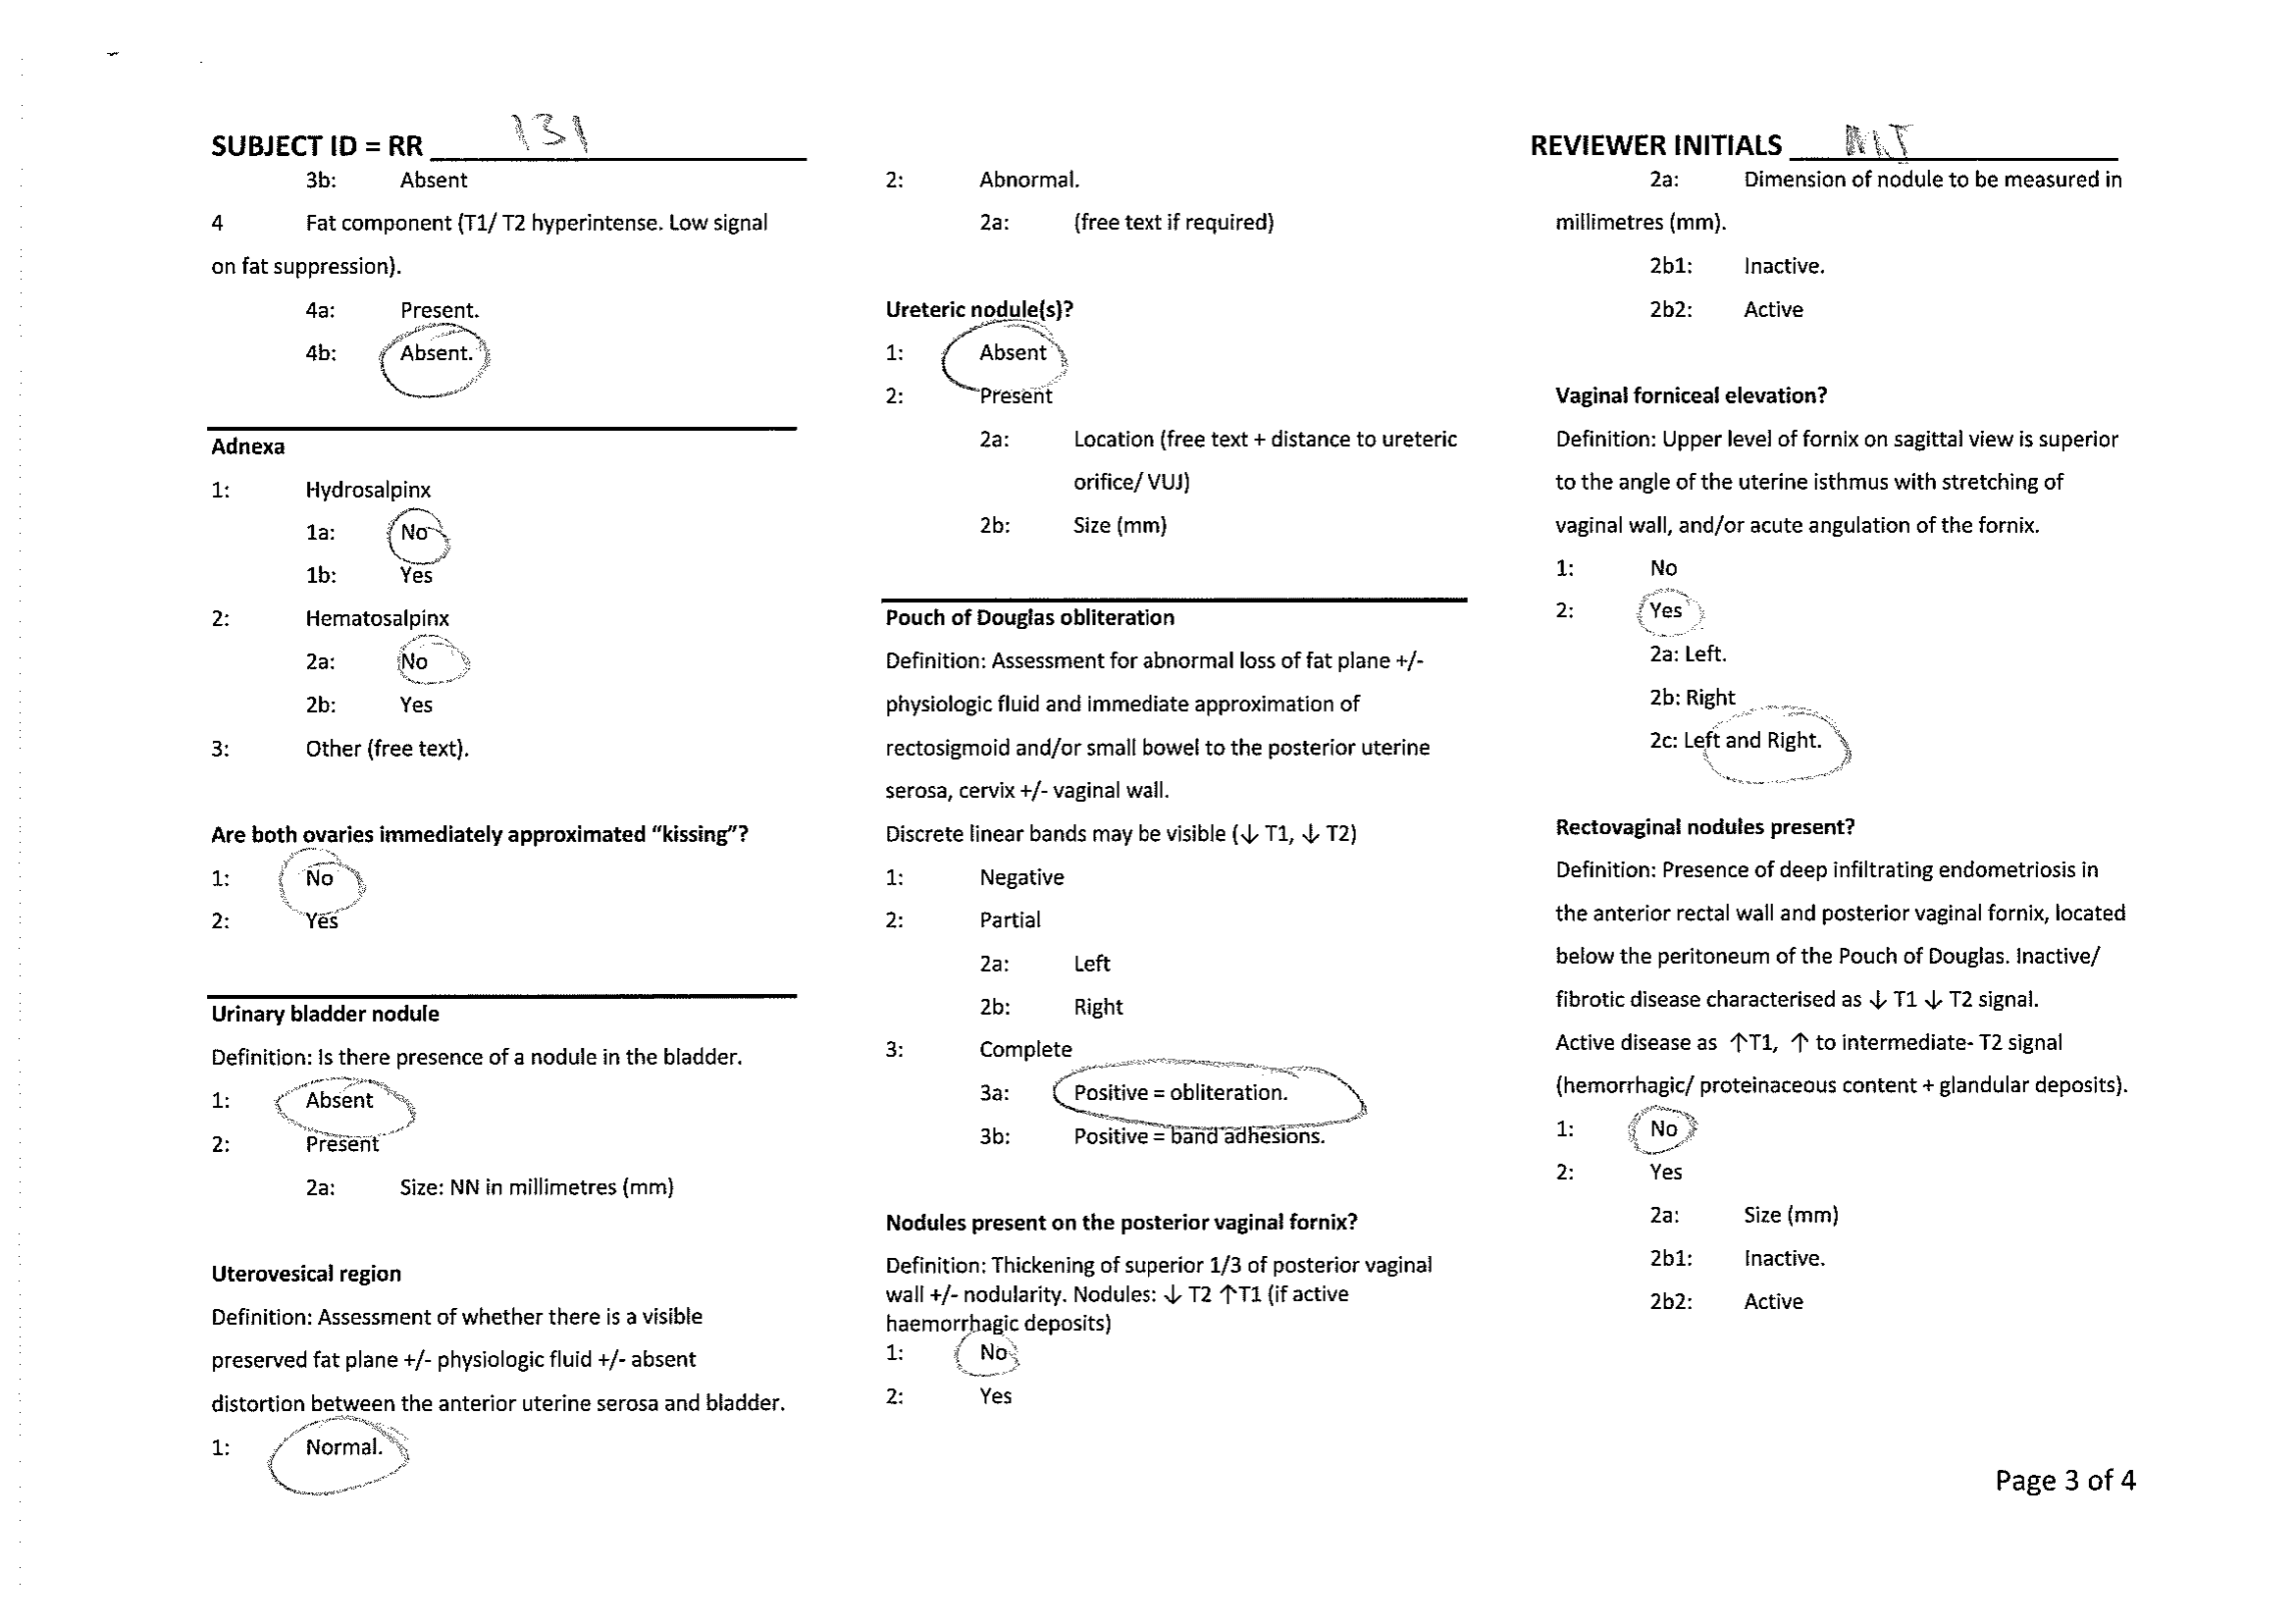 SUBJECT ID = RR 131
3b: Absent
4 Fat component (T1/ T2 hyperintense. Low signal
on fat suppression).
4a: Present.
4b: Absent.
Adnexa
1: Hydrosalpinx
1a: No
1b: Yes
2: Hematosalpinx
2a: No
2b: Yes
3: Other (free text).
Are both ovaries immediately approximated “kissing”?
1: No
2: Yes
Urinary bladder nodule
Definition: Is there presence of a nodule in the bladder.
1: Absent
2: Present
2a: Size: NN in millimetres (mm)
Uterovesical region
Definition: Assessment of whether there is a visible
preserved fat plane +/- physiologic fluid +/- absent
distortion between the anterior uterine serosa and bladder.
1: Normal.
2: Abnormal.
2a: (free text if required)
Ureteric nodule(s)?
1: Absent
2: Present
2a: Location (free text + distance to ureteric
orifice/ VUJ)
2b: Size (mm)
Pouch of Douglas obliteration
Definition: Assessment for abnormal loss of fat plane +/-
physiologic fluid and immediate approximation of
rectosigmoid and/or small bowel to the posterior uterine
serosa, cervix +/- vaginal wall.
Discrete linear bands may be visible (↓ T1, ↓ T2)
1: Negative
2: Partial
2a: Left
2b: Right
3: Complete
3a: Positive = obliteration.
3b: Positive = band adhesions.
Nodules present on the posterior vaginal fornix?
Definition: Thickening of superior 1/3 of posterior vaginal
wall +/- nodularity. Nodules: ↓ T2 ↑T1 (if active
haemorrhagic deposits)
1: No
2: Yes
REVIEWER INITIALS MT
2a: Dimension of nodule to be measured in
millimetres (mm).
2b1: Inactive.
2b2: Active
Vaginal forniceal elevation?
Definition: Upper level of fornix on sagittal view is superior
to the angle of the uterine isthmus with stretching of
vaginal wall, and/or acute angulation of the fornix.
1: No
2: Yes
2a: Left.
2b: Right
2c: Left and Right.
Rectovaginal nodules present?
Definition: Presence of deep infiltrating endometriosis in
the anterior rectal wall and posterior vaginal fornix, located
below the peritoneum of the Pouch of Douglas. Inactive/
fibrotic disease characterised as ↓ T1 ↓ T2 signal.
Active disease as ↑T1, ↑ to intermediate- T2 signal
(hemorrhagic/ proteinaceous content + glandular deposits).
1: No
2: Yes
2a: Size (mm)
2b1: Inactive.
2b2: Active
Page 3 of 4